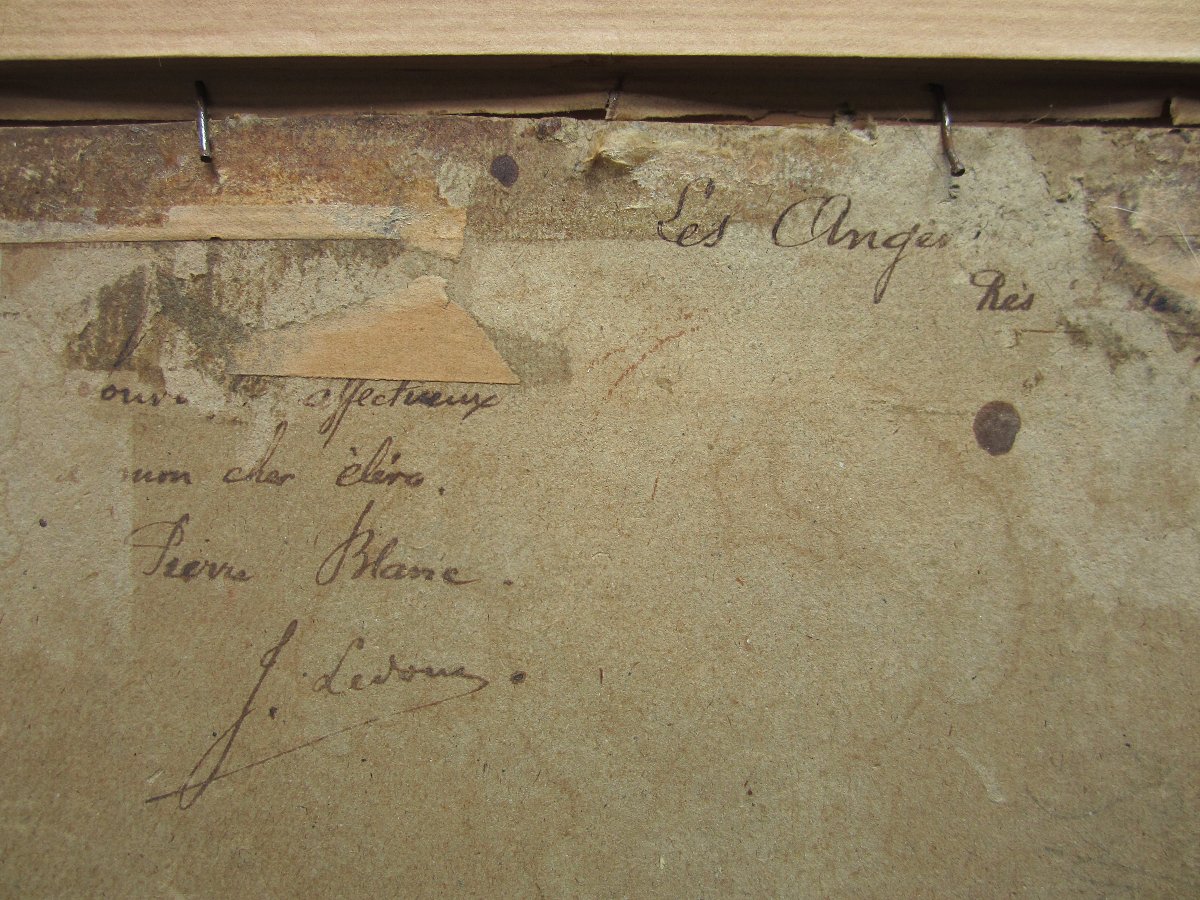 Les Angles
Près
affectueux
mon cher élève.
Pierre Blanc.
J. Ledoux.